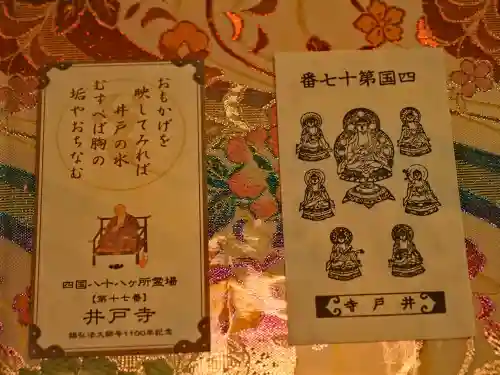 おもかげを
映してみれば
井戸の水
むすべば胸の
垢やおちなむ
四国八十八ヶ所霊場
【第十七番】
井戸寺
番七十第国四
寺戸井